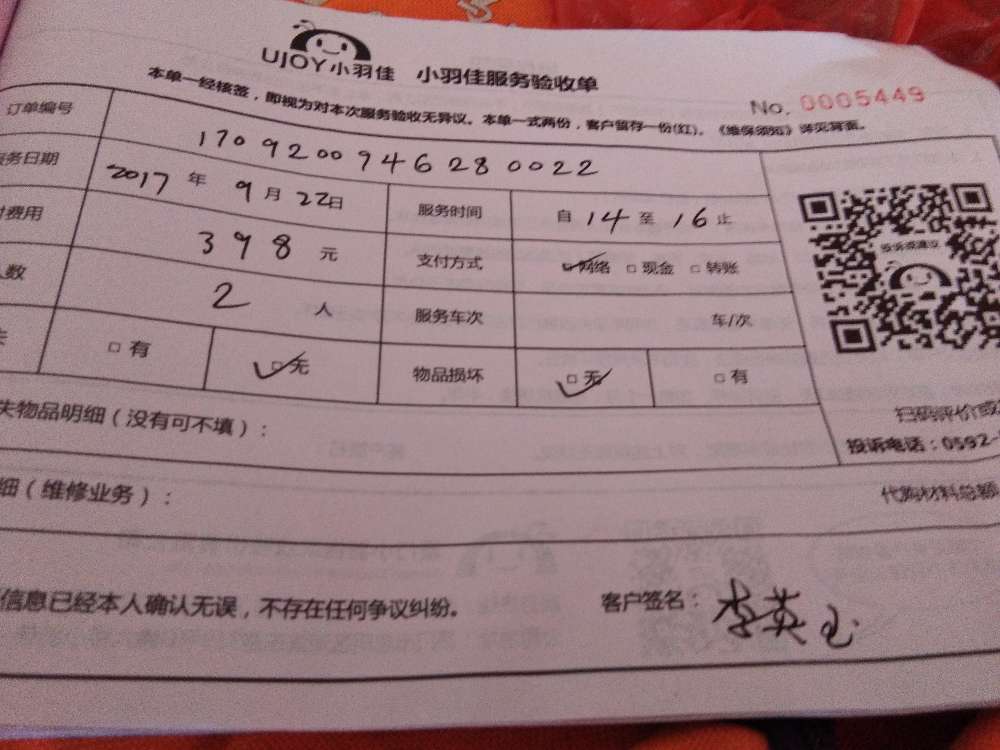 UJOY小羽佳 小羽佳服务验收单
No. 0005449
本单一经核签，即视为对本次服务验收无异议。本单一式两份，客户留存一份(红)。《维保须知》详见背面。
订单编号 170920094628 0022
务日期 2017 年 9 月 22日 服务时间 自 14 至 16 止
费用 398 元 支付方式 网络 □ 现金 □ 转账
人数 2 人 服务车次 车/次
□ 有 □ 无 物品损坏 □ 无 □ 有
投诉或建议
失物品明细（没有可不填）：
扫码评价或
投诉电话：0592-
细（维修业务）：
代购材料总额
信息已经本人确认无误，不存在任何争议纠纷。
客户签名：李英玉